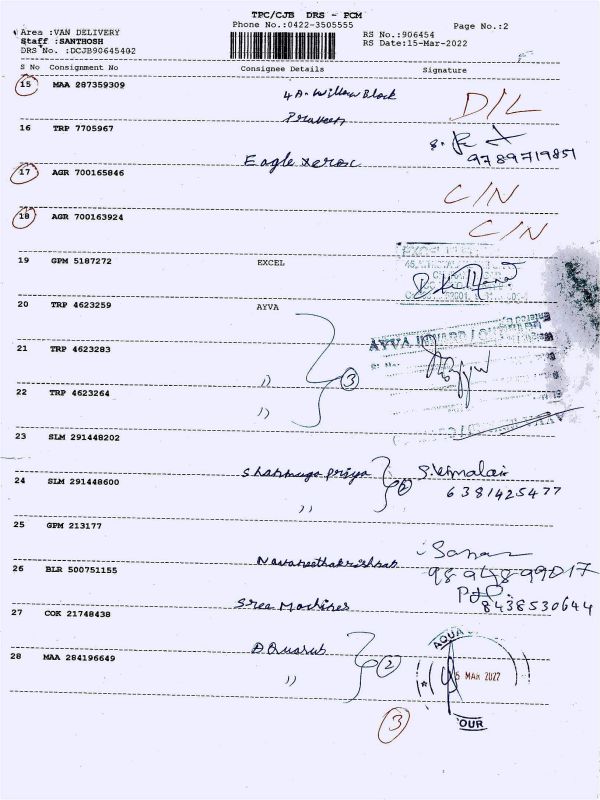 TPC/CJB DRS - PCM
Phone No.:0422-3505555
Page No.:2
Area :VAN DELIVERY
Staff :SANTHOSH
DRS No. :DCJB90645402
RS No.:906454
RS Date:15-Mar-2022
S No Consignment No Consignee Details Signature
15 MAA 287359309 4A. Willow Block D/L
16 TRP 7705967 Praveen
9789719851
17 AGR 700165846 Eagle xerox C/N
18 AGR 700163924 C/N
19 GPM 5187272 EXCEL
20 TRP 4623259 AYVA
21 TRP 4623283 〃 3
22 TRP 4623264 〃
23 SLM 291448202
24 SLM 291448600 Shanmuga priya 2
6381425477
〃
25 GPM 213177
26 BLR 500751155 Navaneethakrishnan
98948-99017
27 COK 21748438 Sree Machines
8438530644
28 MAA 284196649 2
〃
AQUA
5 MAR 2022
OUR
3